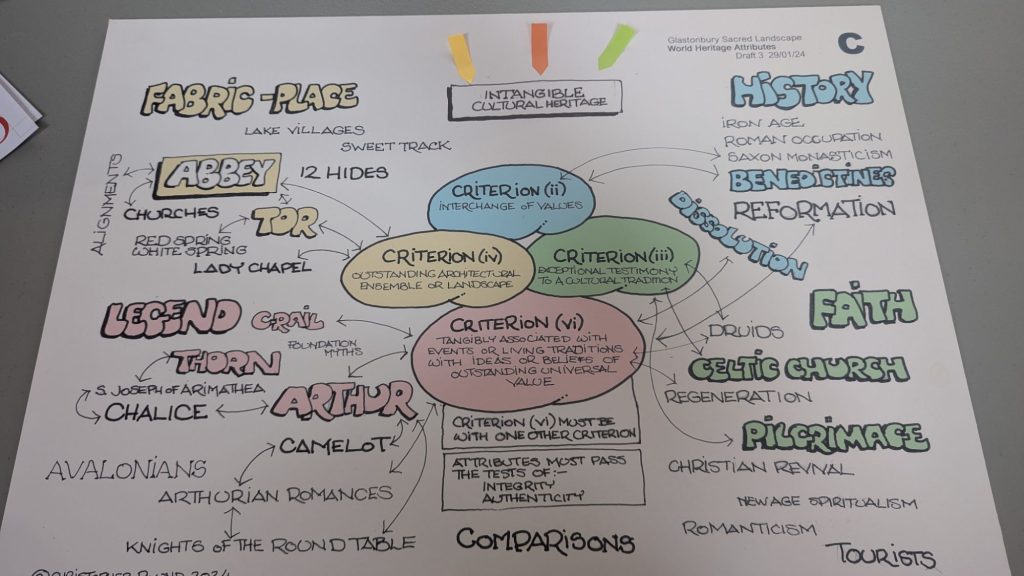 Glastonbury Sacred Landscape
World Heritage Attributes
Draft 3 29/01/24
C
INTANGIBLE
CULTURAL HERITAGE
FABRIC - PLACE
LAKE VILLAGES
SWEET TRACK
ALIGNMENTS
ABBEY
12 HIDES
CHURCHES
TOR
RED SPRING
WHITE SPRING
LADY CHAPEL
LEGEND
GRAIL
FOUNDATION
MYTHS
THORN
S. JOSEPH OF ARIMATHEA
CHALICE
ARTHUR
CAMELOT
AVALONIANS
ARTHURIAN ROMANCES
KNIGHTS OF THE ROUND TABLE
CRITERION (ii)
INTERCHANGE OF VALUES
CRITERION (iv)
OUTSTANDING ARCHITECTURAL
ENSEMBLE OR LANDSCAPE
CRITERION (iii)
EXCEPTIONAL TESTIMONY
TO A CULTURAL TRADITION
CRITERION (vi)
TANGIBLY ASSOCIATED WITH
EVENTS OR LIVING TRADITIONS
WITH IDEAS OR BELIEFS OF
OUTSTANDING UNIVERSAL
VALUE
CRITERION (vi) MUST BE
WITH ONE OTHER CRITERION
ATTRIBUTES MUST PASS
THE TESTS OF:-
INTEGRITY
AUTHENTICITY
COMPARISONS
HISTORY
IRON AGE
ROMAN OCCUPATION
SAXON MONASTICISM
BENEDICTINES
REFORMATION
DISSOLUTION
FAITH
DRUIDS
CELTIC CHURCH
REGENERATION
PILGRIMAGE
CHRISTIAN REVIVAL
NEW AGE SPIRITUALISM
ROMANTICISM
TOURISTS
2024